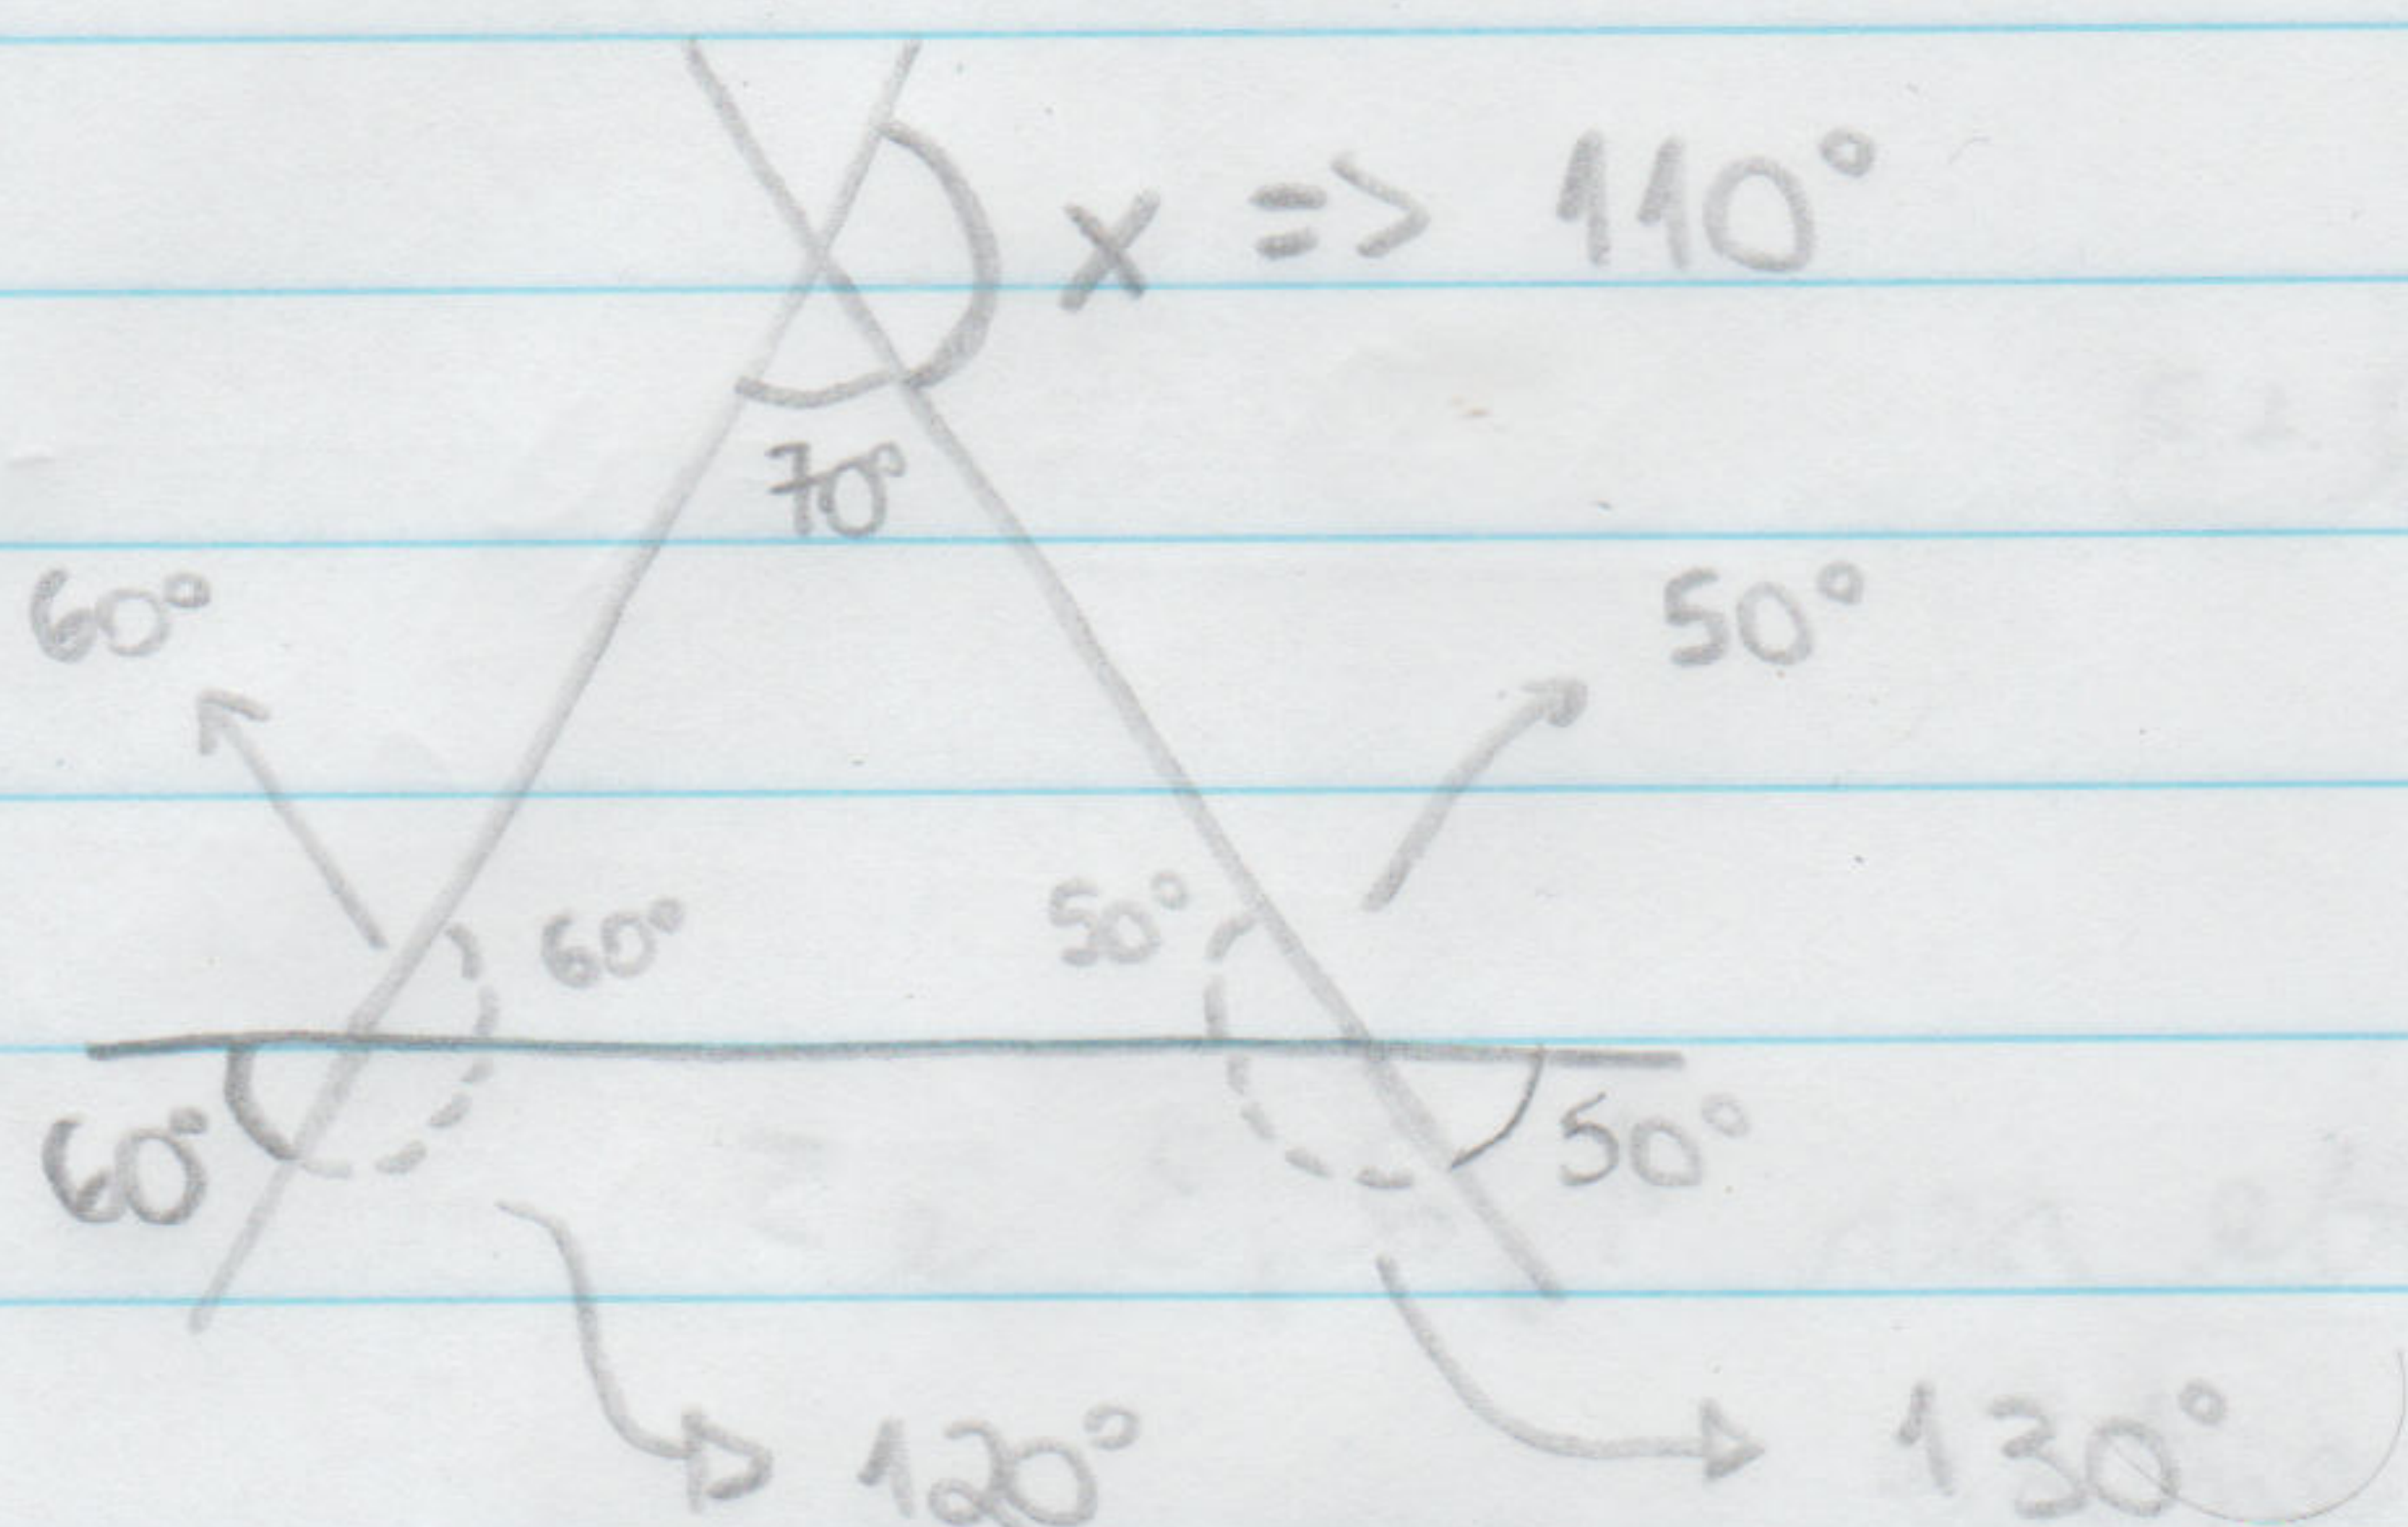 x => 110°
70°
60°
50°
60°
50°
60°
50°
120°
130°